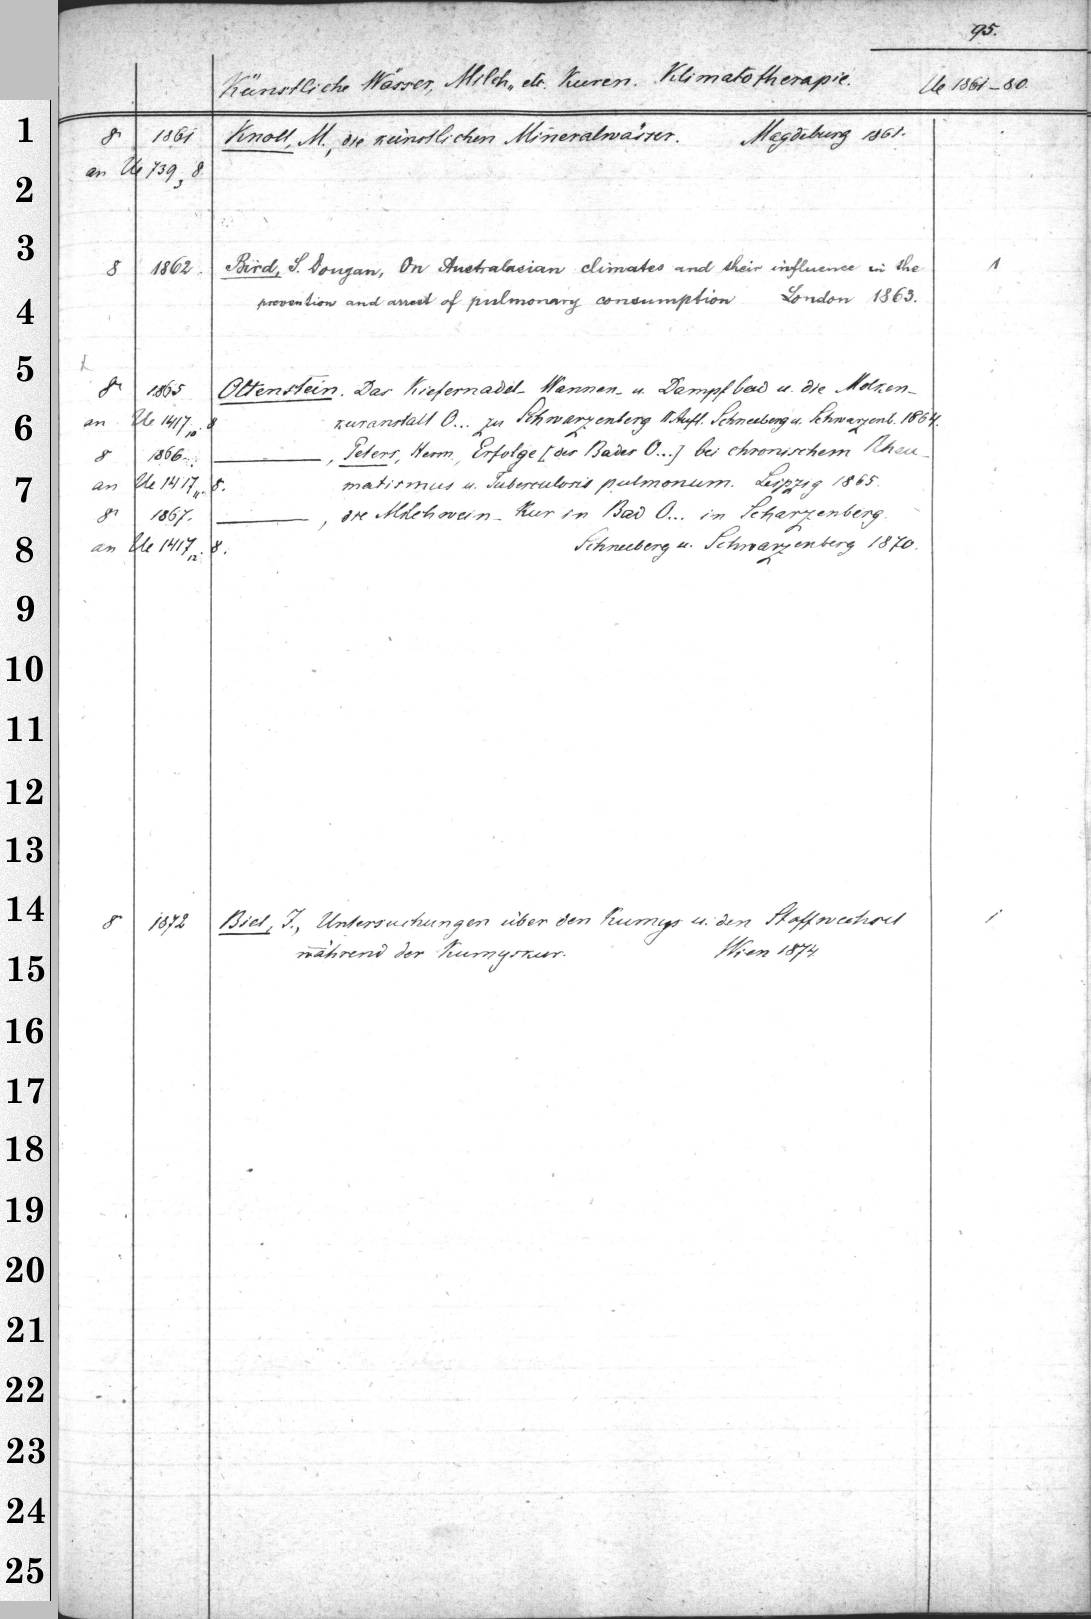 95.
Künstliche Wässer, Milch- etc. Kuren. Klimatotherapie. Ue 1861-80.
1
8 1861 Knoll, M., die künstlichen Mineralwässer. Magdeburg 1861.
an Ue 739,3 8.
2
3
8 1862. Bird, S. Dougan, On Australasian climates and their influence in the 1
prevention and arrest of pulmonary consumption London 1863.
4
5
8 1865 Ottenstein. Das Kiefernadel- Wannen- u. Dampfbad u. die Molken-
6
an Ue 1417,10. 8 kuranstalt O... zu Schwarzenberg II Aufl. Schneeberg u. Schwarzenb. 1864.
8 1866. ———, Peters, Herm., Erfolge [des Bades O...] bei chronischem Rheu-
7
an Ue 1417,11. 8. matismus u. Tuberculosis pulmonum. Leipzig 1865.
8 1867. ———, die Milchwein-Kur in Bad O... in Scharzenberg.
8
an Ue 1417,12. 8. Schneeberg u. Schwarzenberg 1870.
9
10
11
12
13
14
8 1872 Biel, J., Untersuchungen über den Kumys u. den Stoffwechsel 1
während der Kumyskur. Wien 1874
15
16
17
18
19
20
21
22
23
24
25